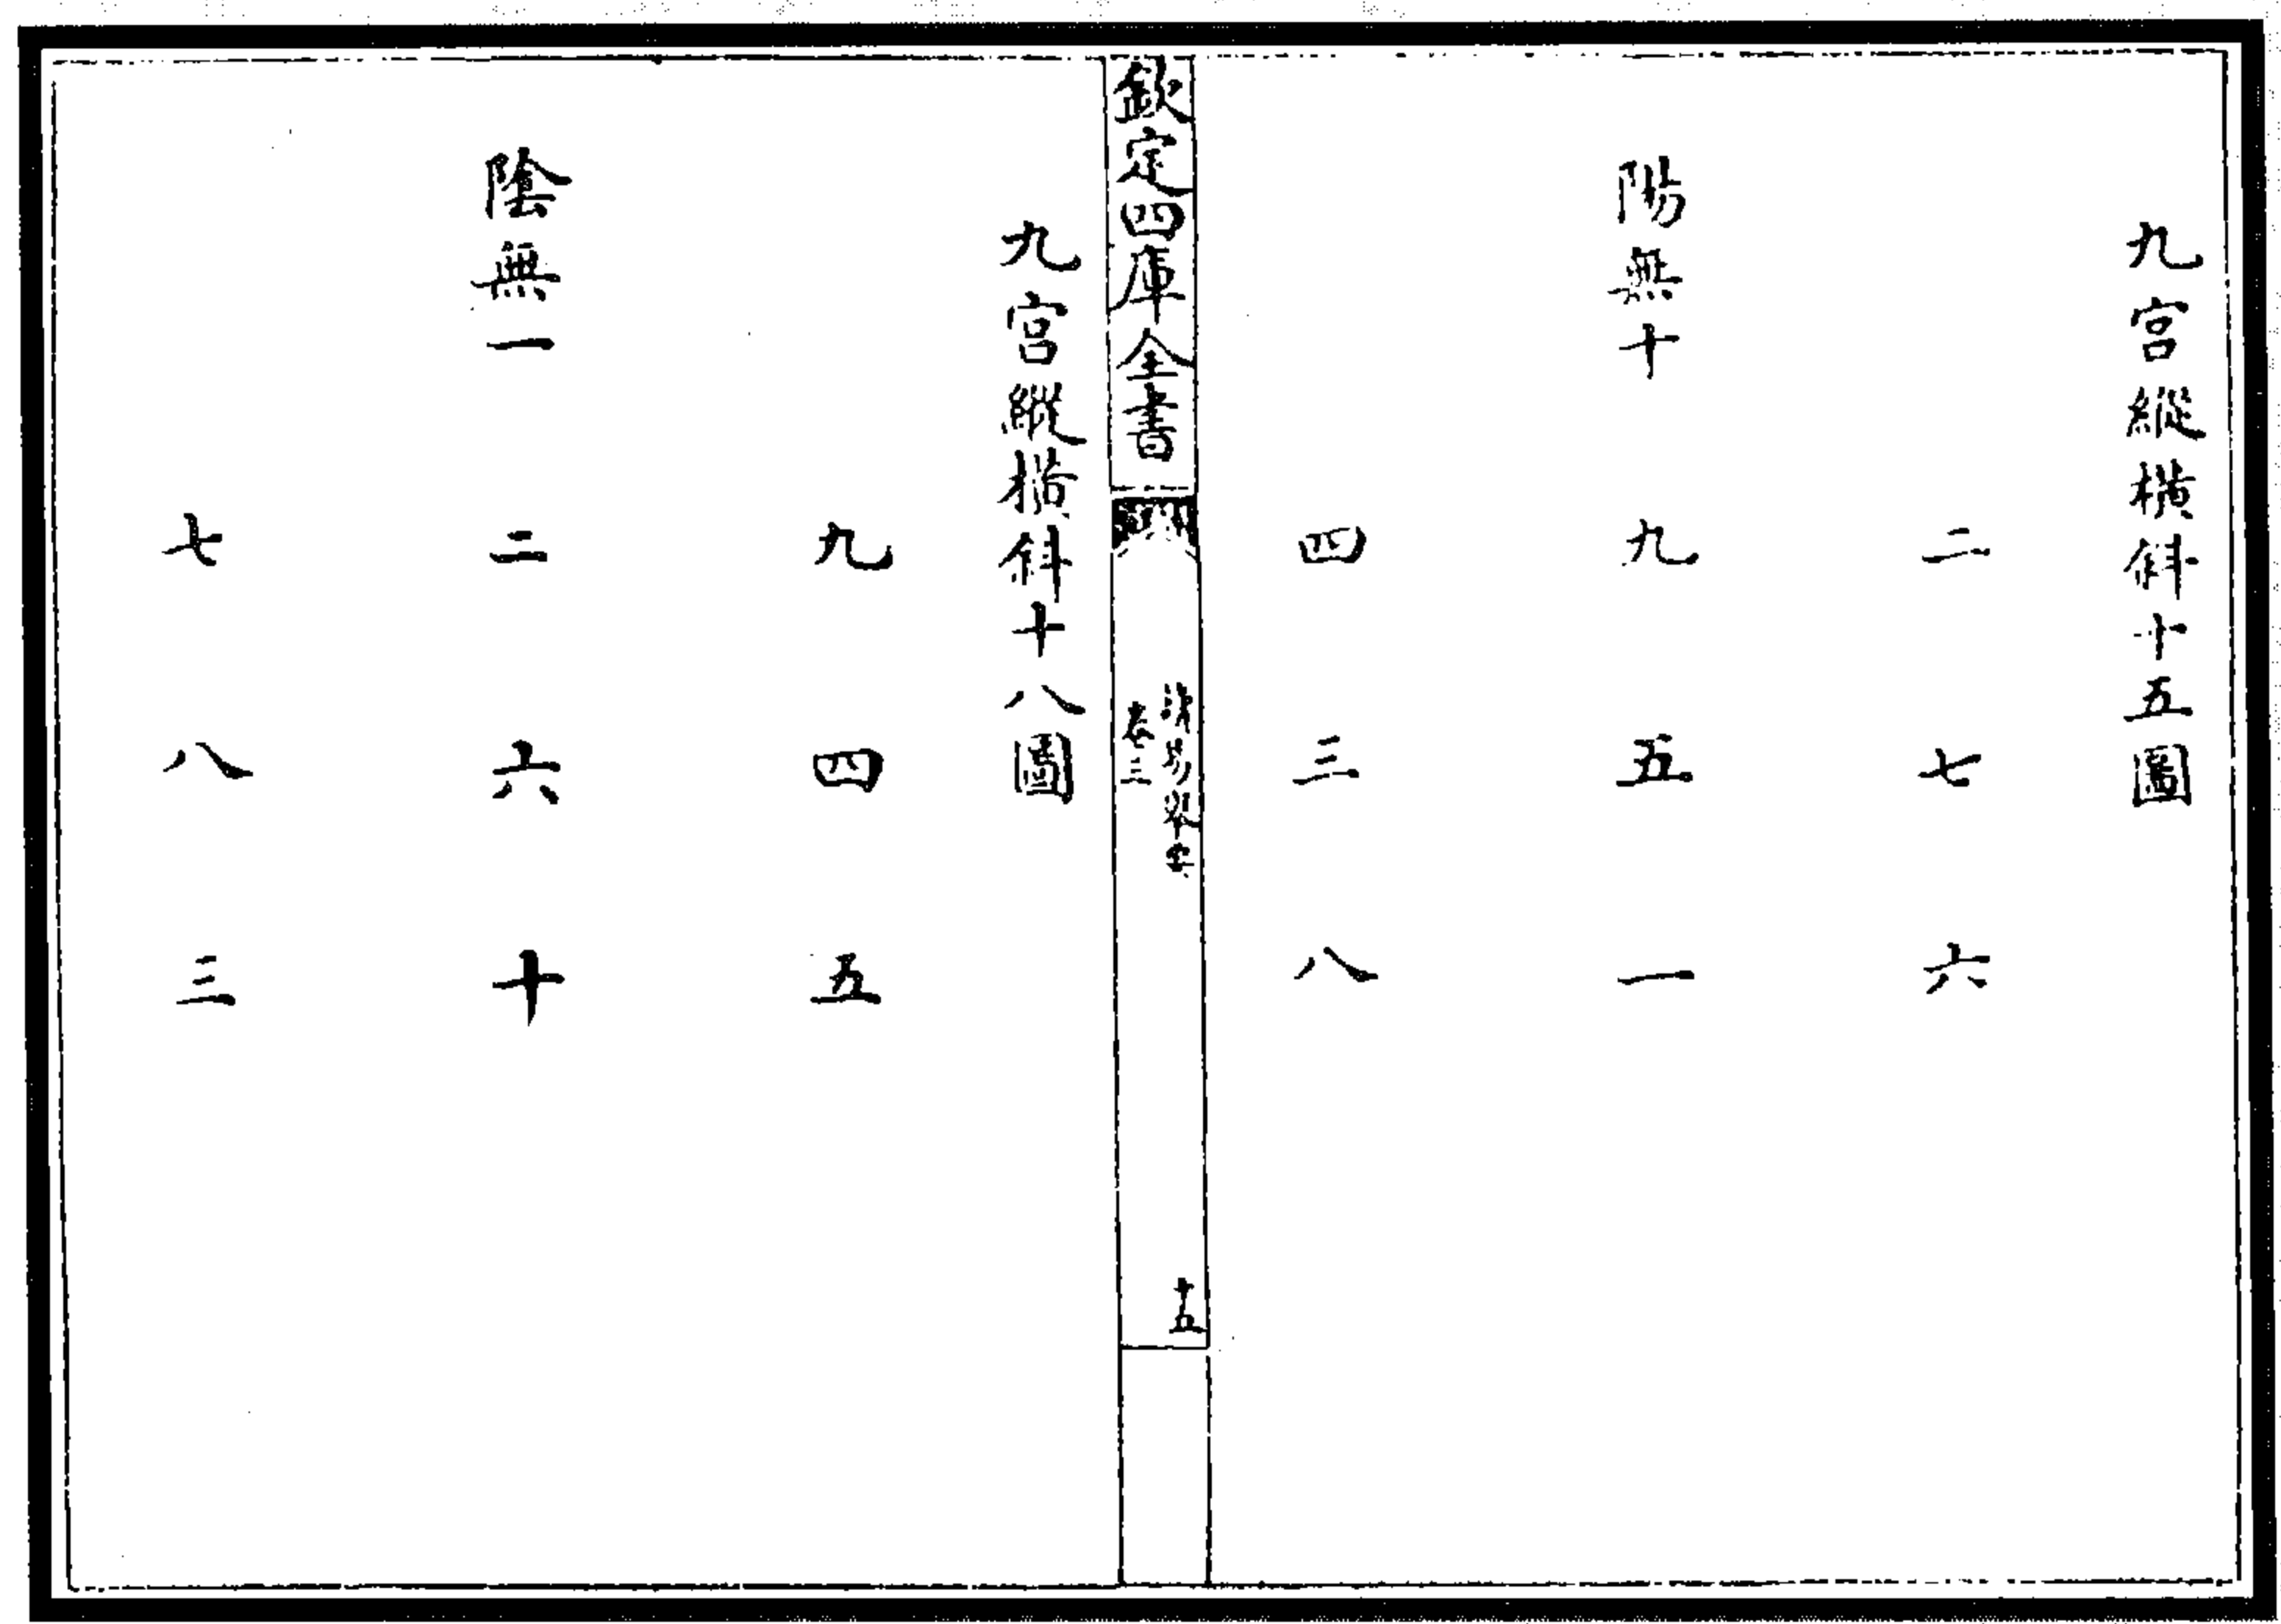 九宮縱橫斜十五圖
二七六
陽無十
九五一
四三八
欽定四庫全書
讀易舉要
卷三
十五
九宮縱橫斜十八圖
九四五
陰無一
二六十
七八三